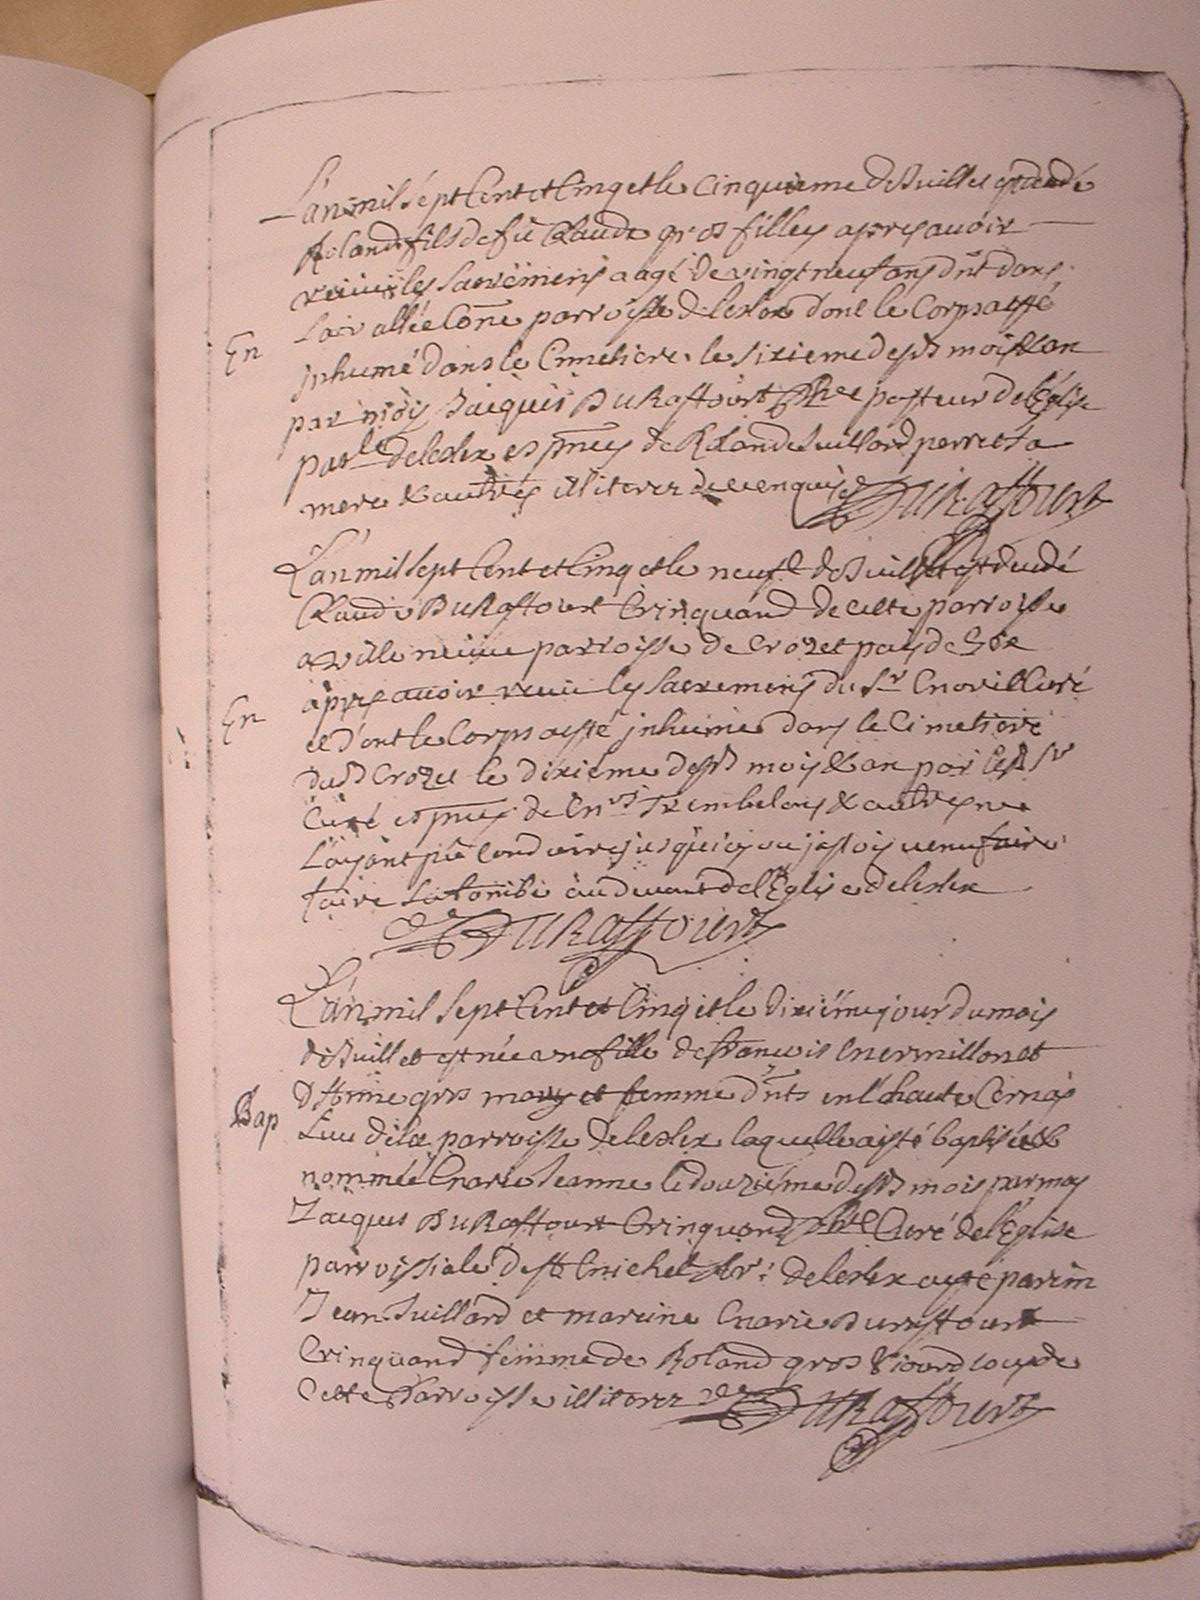 L'an mil sept Cent et Cinq et le Cinquieme de Juillet est decedé
Roland fils de feu Claude gros fillex apres avoir
receu les sacremens aagé de vingt neuf ans dans
la vallée parroisse de lelex dont le Corps a esté
En
inhumé dans le Cimetiere le sixieme desd mois & an
par moy Jacques DuRaffourt pasteur de l'Eglise
parle de lelex es pnces de Roland Juillard perret sa
mere & autres illiterez de ce enquis DuRaffourt
L'an mil sept Cent et Cinq et le neufe de Juillet est decedé
Claude DuRaffourt Crinquand de cette parroisse
a ville neuve parroisse de Crozet pais de Gex
apres avoir receu les sacremens du Sr Curé
En
et dont le Corps a esté inhumé dans le Cimetiere
dud Crozet le dixieme desd mois & an par led Sr
Curé es pnces de Trembelay & autres ne
L'ayant pû Conduire jusques icy ou j'estois venu faire
faire la tombe au devant de l'Eglise de lelex
DuRaffourt
L'an mil sept Cent et Cinq et le dixieme jour du mois
de Juillet est née une fille de francois Ermillon et
D'Anne gros marys et femme dnts en l'haute
Bap
parroisse de lelex laquelle a esté baptisée &
nommée Marie Jeanne le douzieme desd mois par moy
Jacques DuRaffourt Crinquand pbre Curé de l'Eglise
parroissiale de St Michel de lelex a esté parrin
Jean Juillard et marine Marie Duraffourt
Crinquand femme de Roland gros de
Cette Parroisse illiterez DuRaffourt